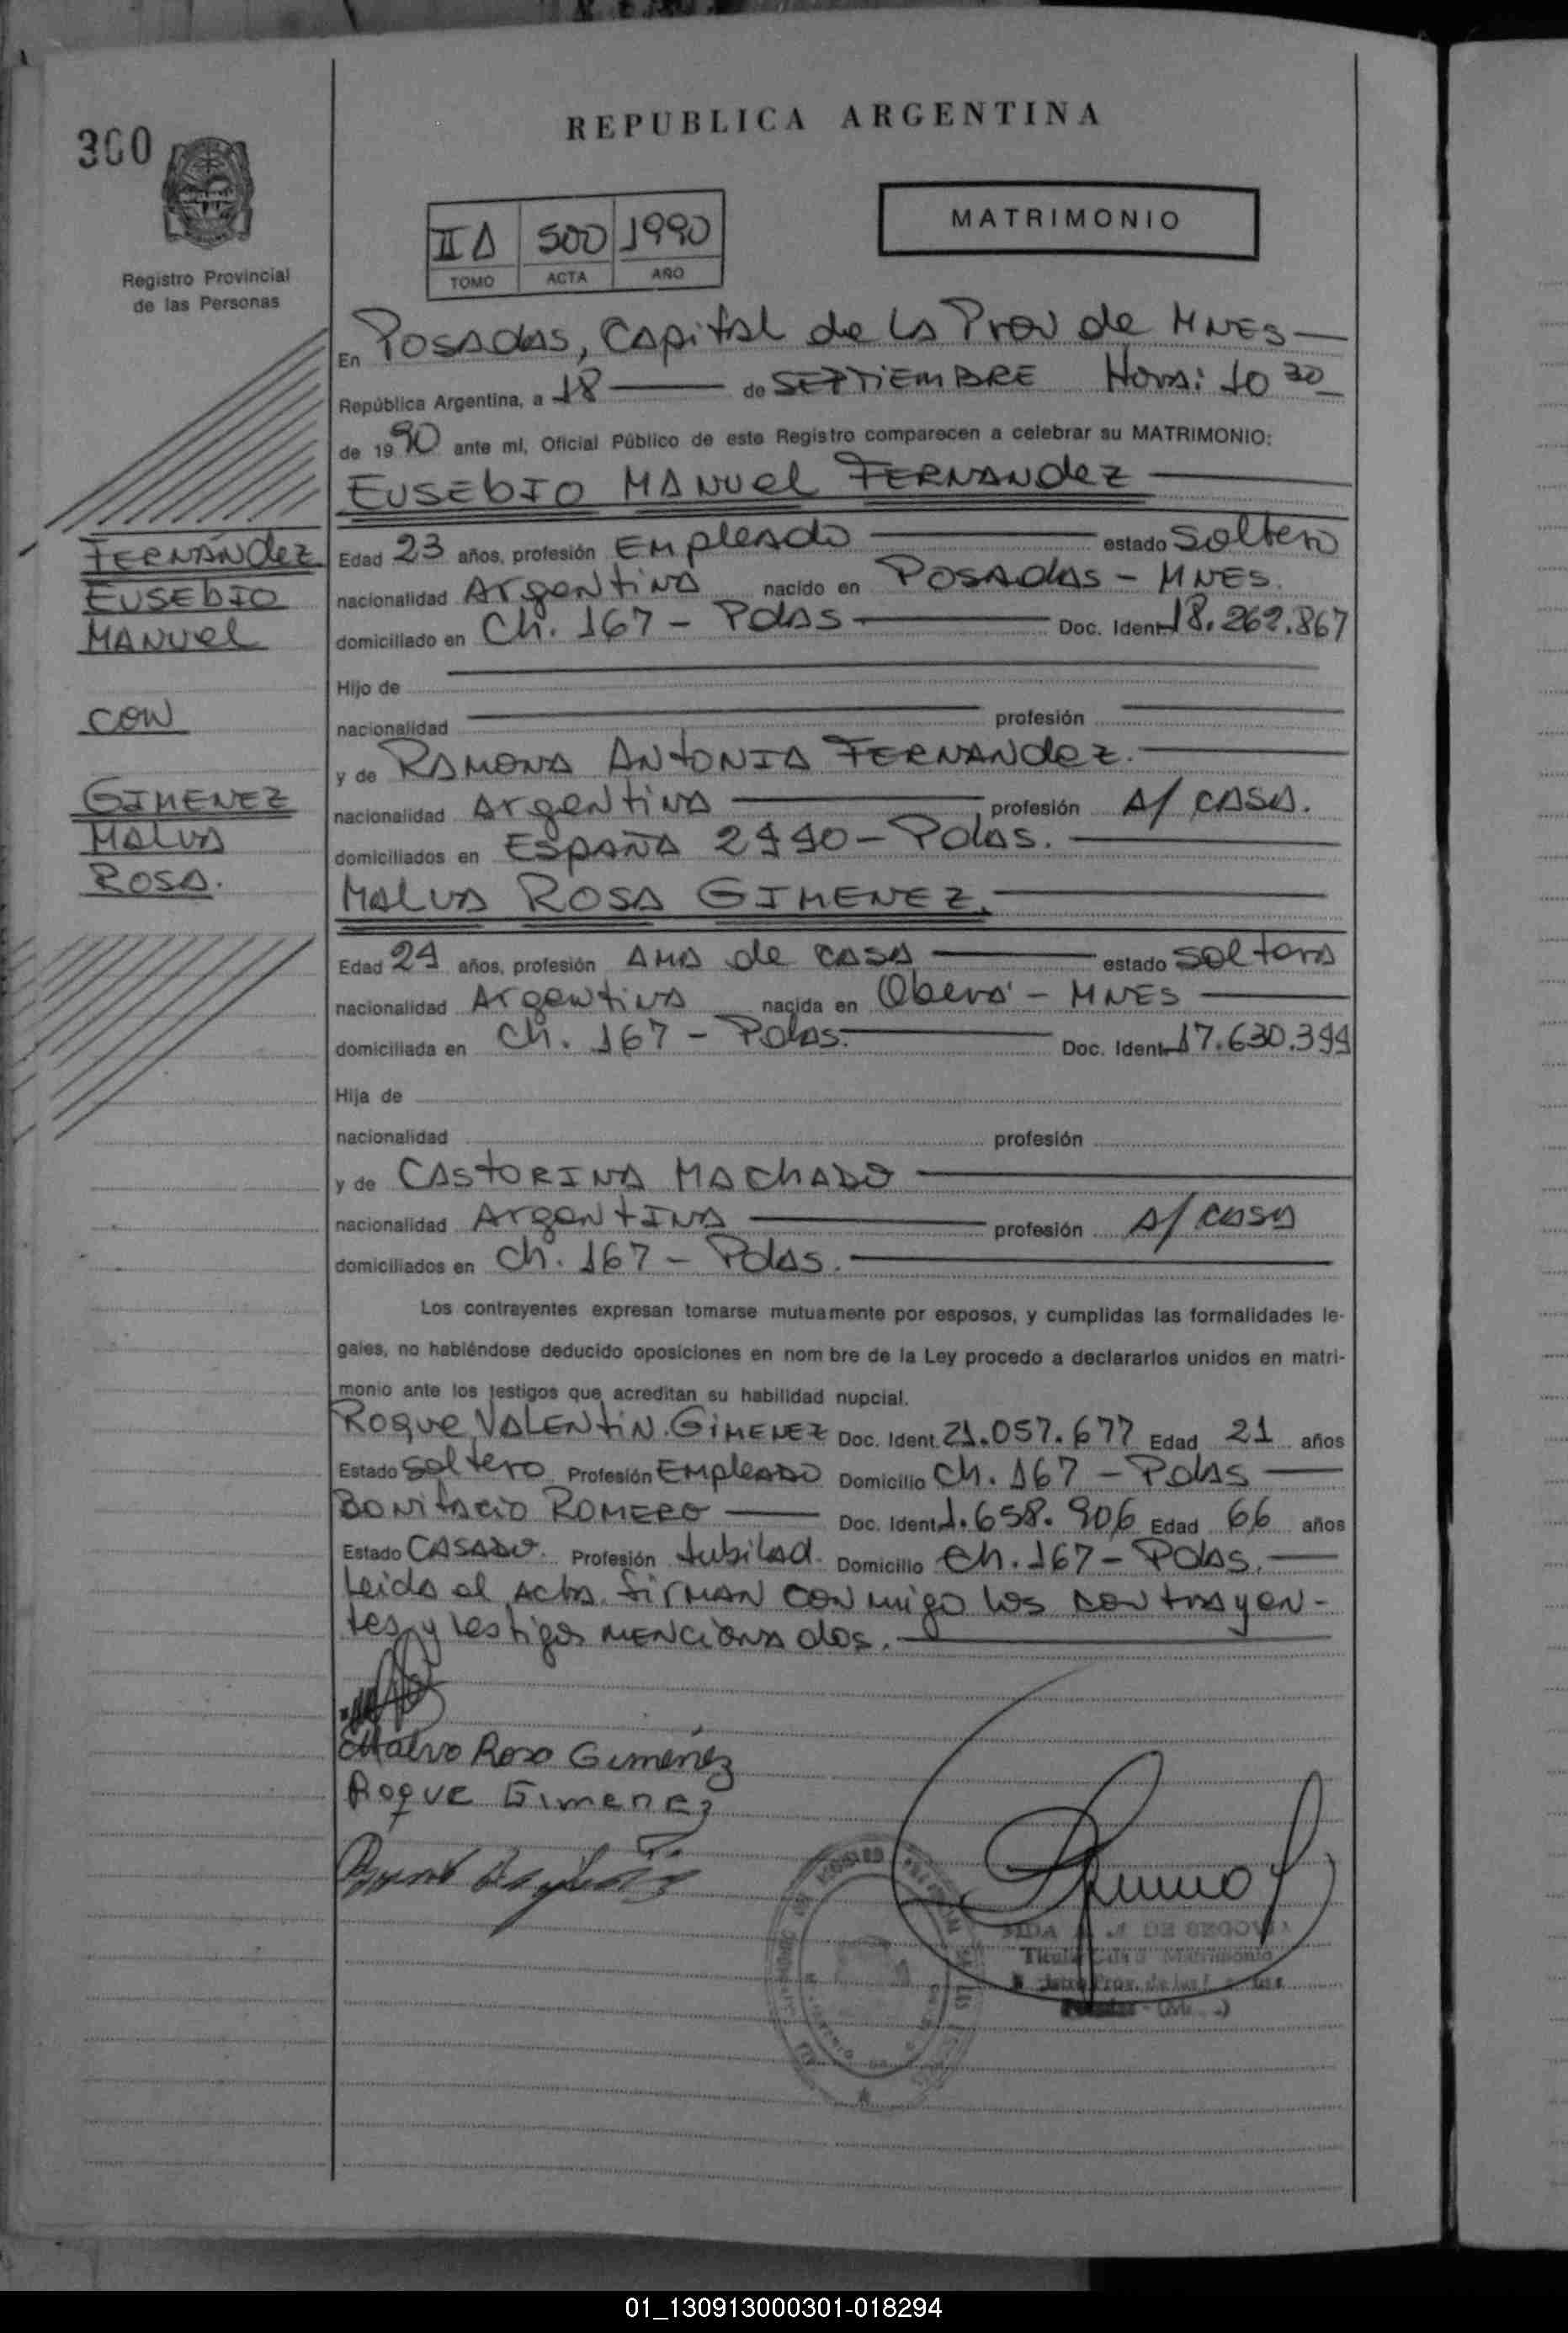 REPUBLICA ARGENTINA
360
Registro Provincial
de las Personas
II A 500 1990
TOMO ACTA AÑO
MATRIMONIO
En Posadas, Capital de la Prov de Mnes
República Argentina, a 18 de SEPTIEMBRE Hora: 10 30
de 1990 ante mi, Oficial Público de este Registro comparecen a celebrar su MATRIMONIO:
EUSEbIO MANUel FERNANdeZ
FERNÁNdeZ
EUSEbIO
MANUel
CON
GIMENEZ
MALVA
ROSA.
Edad 23 años, profesión EMpleado estado Soltero
nacionalidad Argentina nacido en POSAdAS - MNES.
domiciliado en Ch. 167 - PdAS Doc. Ident. 18.262.867
Hijo de
nacionalidad profesión
y de RAMONA ANtONIA FERNANdeZ.
nacionalidad Argentina profesión A/ CASA.
domiciliados en ESPAÑA 2440 - PdAS.
MALVA ROSA GIMENEZ.
Edad 24 años, profesión AMA de CASA estado Soltera
nacionalidad Argentina nacida en Oberá - MNES
domiciliada en Ch. 167 - PdAS. Doc. Ident. 17.630.394
Hija de
nacionalidad profesión
y de CAStORINA MAChADO
nacionalidad ArgentINA profesión A/ CASA
domiciliados en Ch. 167 - PdAS.
Los contrayentes expresan tomarse mutuamente por esposos, y cumplidas las formalidades le-
gales, no habiéndose deducido oposiciones en nom bre de la Ley procedo a declararlos unidos en matri-
monio ante los testigos que acreditan su habilidad nupcial.
Roque VALENtiN GiMENEZ Doc. Ident. 21.057.677 Edad 21 años
Estado Soltero Profesión EMpleADO Domicilio Ch. 167 - PdAS
BONifacio ROMERO Doc. Ident. 1.658.906 Edad 66 años
Estado CASADO. Profesión Jubilad. Domicilio Ch. 167 - PdAS.
Leida el Acta firMAN CON migo los contrayen-
tes y testigos MENCionAdos.
Malva Rosa Gimenéz
Roque Gimenez
Titular Matrimonio
01_130913000301-018294